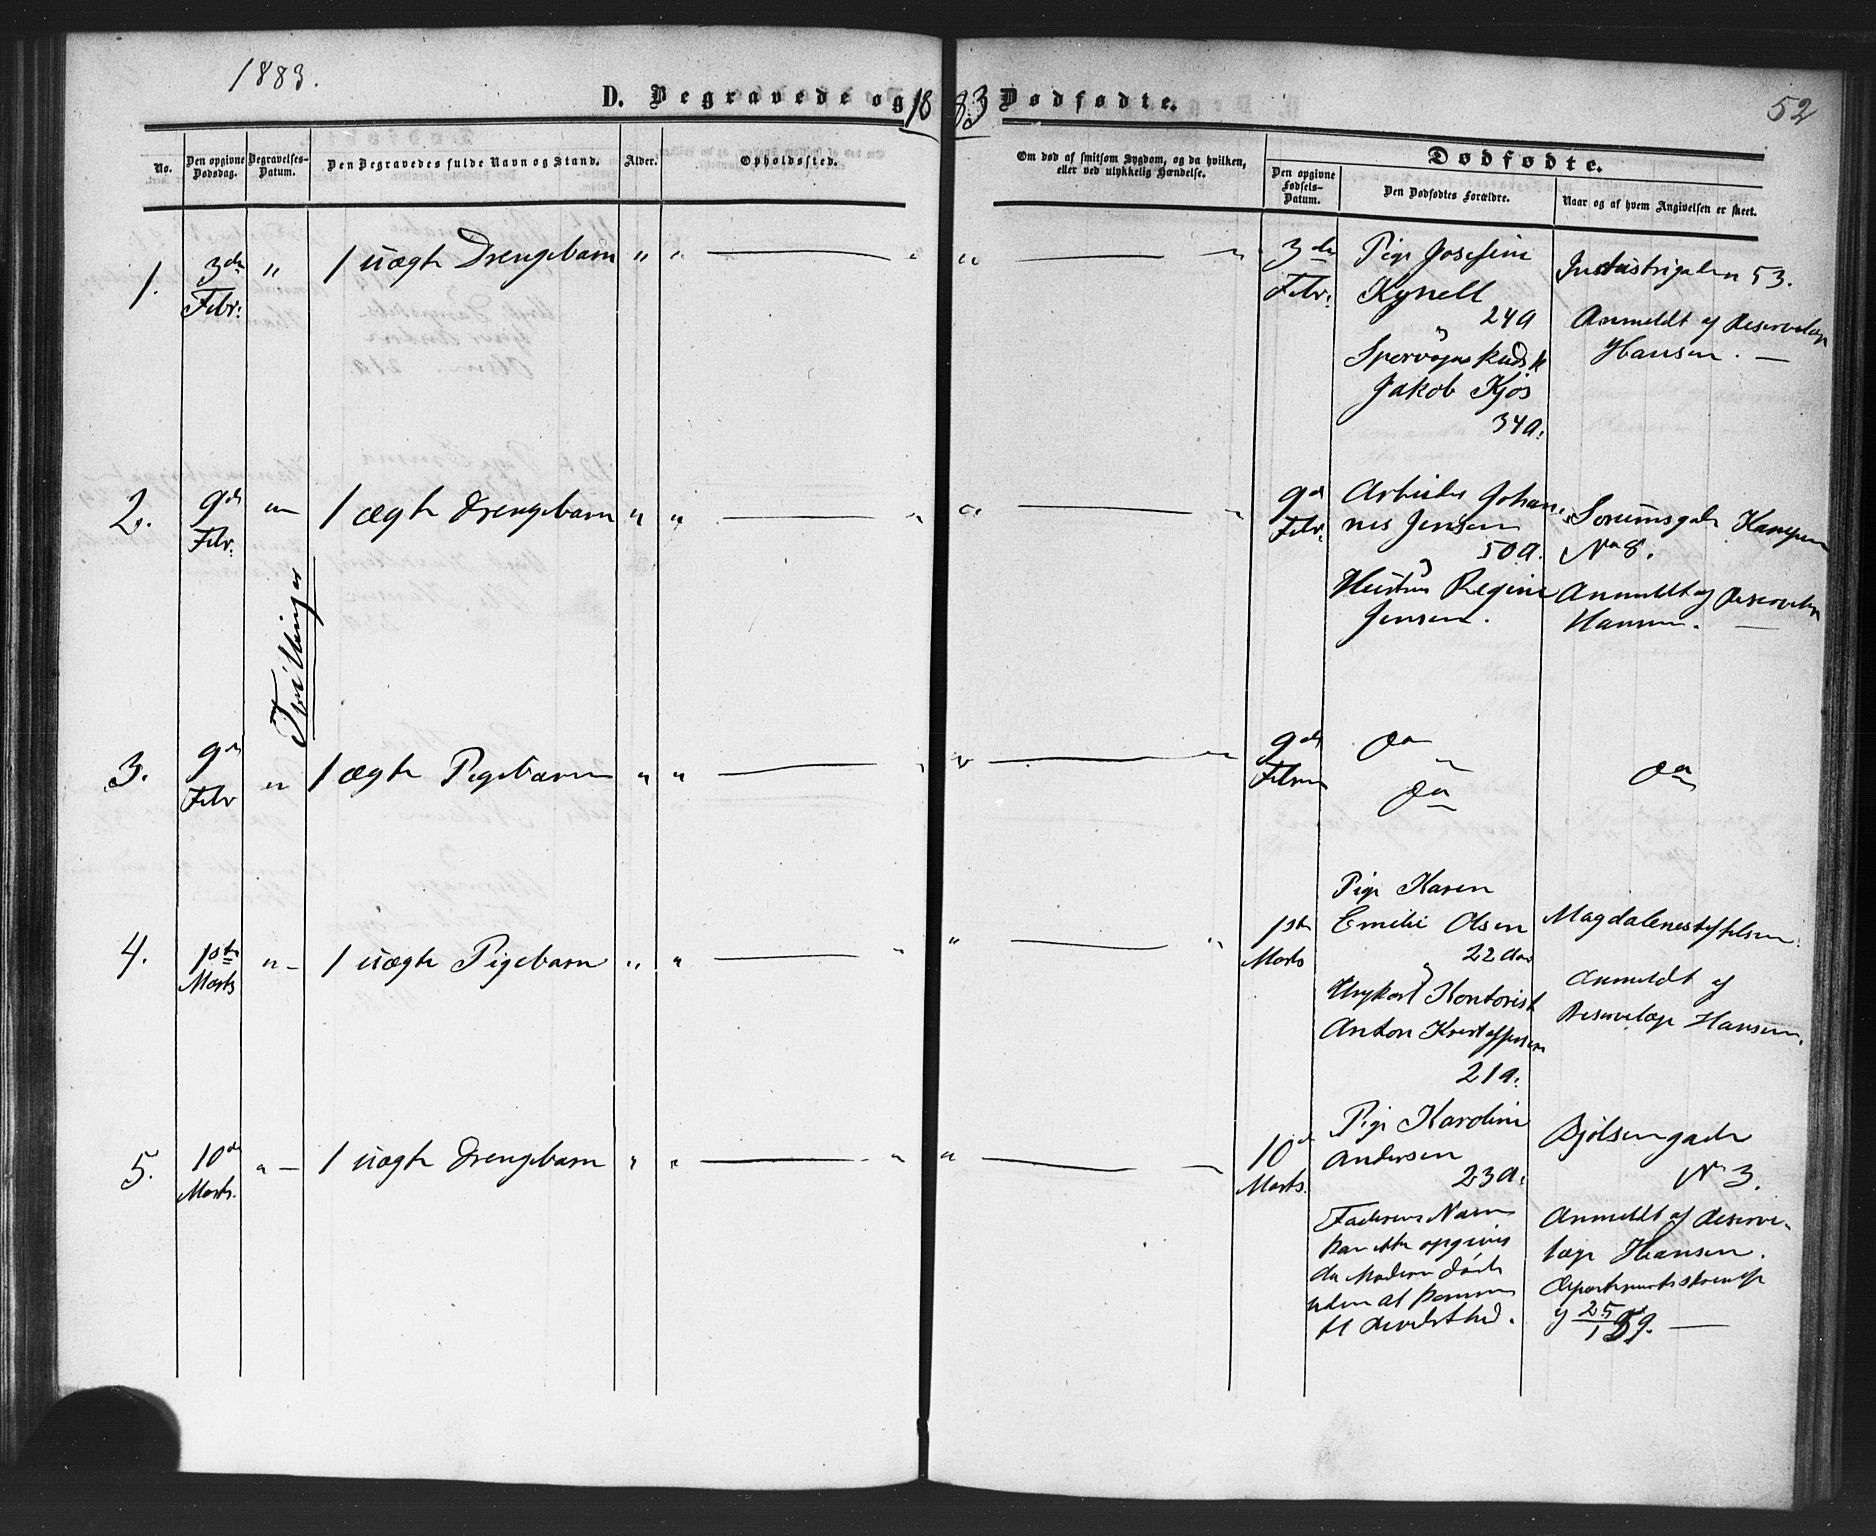 1883.
D. Begravede og 1883 Dødfødte.
52
No.
Den opgivne Dødsdag.
Begravelses-Datum.
Den Begravedes fulde Navn og Stand.
Alder.
Opholdssted.
Om død af smitsom Sygdom, og da hvilken,
eller ved ulykkelig Hændelse.
Dødfødte.
Den opgivne Fødsels-Datum.
Den Dødfødtes Forældre.
Naar og af hvem Angivelsen er skeet.
1.
3de
Febr:
"
1 uægte Drengebarn
"
"
"
"
"
3de
Febr:
Pige Josefine
Kynell
24 a
Sporvognskudsk
Jakob Kjøs
34 a:
Industrigaden 53.
Anmeldt af Reservelæge
Hansen. —
2.
9de
Febr:
"
1 ægte Drengebarn
"
"
"
"
"
9de
Febr:
Arbeider Johan-
nes Jensen
50 a.
Hustru Regine
Jensen.
Sorumsgade Kampen
No 8.
Anmeldt af Reservelæ
Hansen. —
Tvillinger
3.
9de
Febr
"
1 ægte Pigebarn
"
"
"
"
"
9de
Febr
do
do
do
4.
1ste
Marts
"
1 uægte Pigebarn
"
"
"
"
"
1ste
Marts
Pige Karen
Emilie Olsen
22 a
Ungkarl Kontorist
Anton Kristoffersen
21 a:
Magdalenestiftelsen.
Anmeldt af
Reservelæge Hansen.
5.
10de
Marts.
"
1 uægte Drengebarn
"
"
"
"
"
10de
Marts.
Pige Karoline
Andersen
23 a:
Faderens Navn
kan ikke opgives
da Moderen døde
uden at komme
til Bevidsthed.
Bjølsengade
No 3.
Anmeldt af Reserve-
læge Hansen.
Departementsskrivelse
af 25/1 59. —